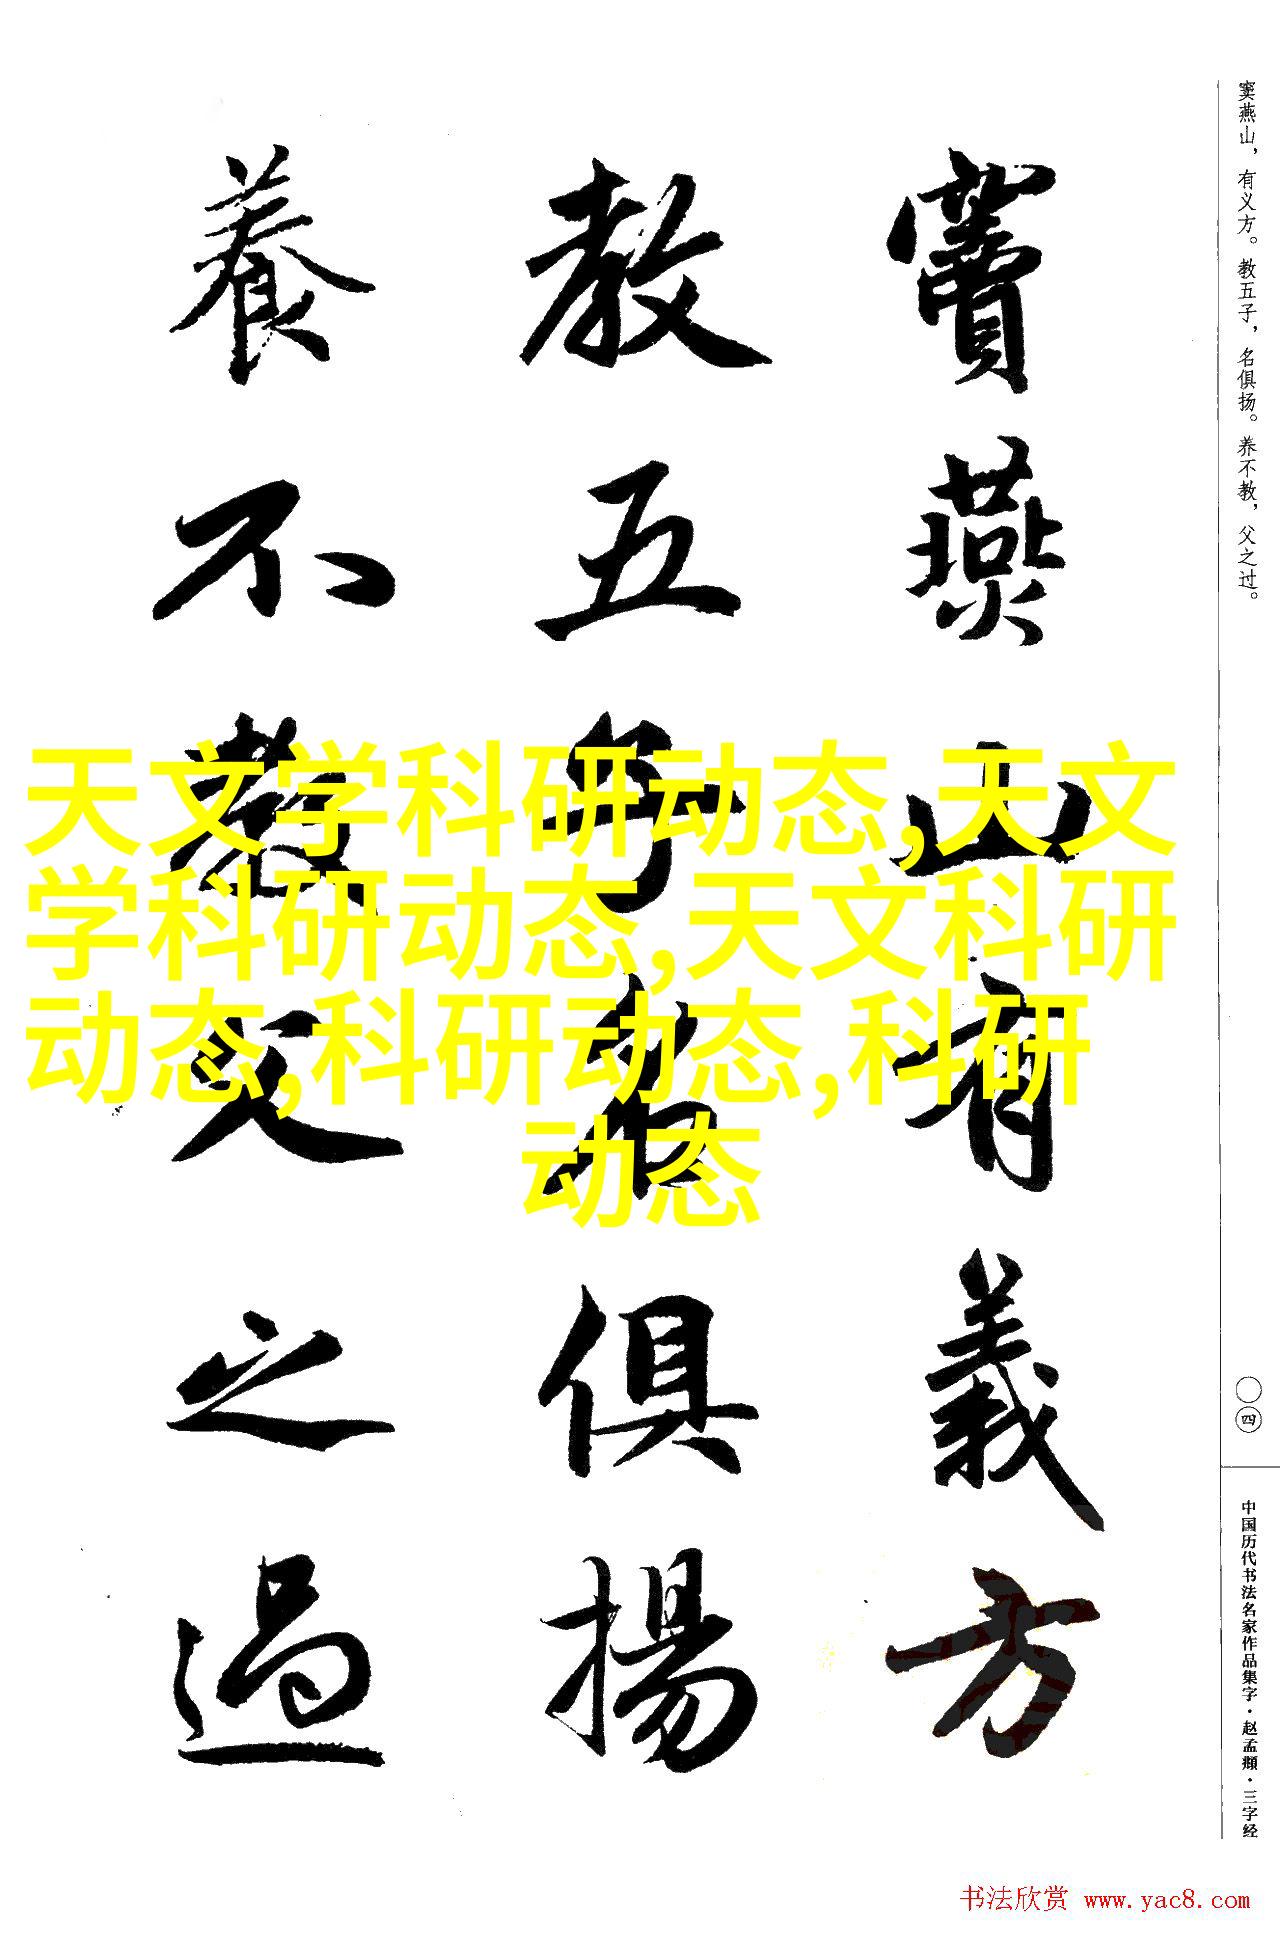 窦燕山，有义方。教五子，名俱扬。养不教，父之过。
竇燕山有義方
教五子名俱揚
養不教父之過
天文学科研动态,天文
学科研动态,天文科研
动态,科研动态,科研
动态
〇四
中国历代书法名家作品集字·赵孟頫·三字经
书法欣赏 www.yac8.com